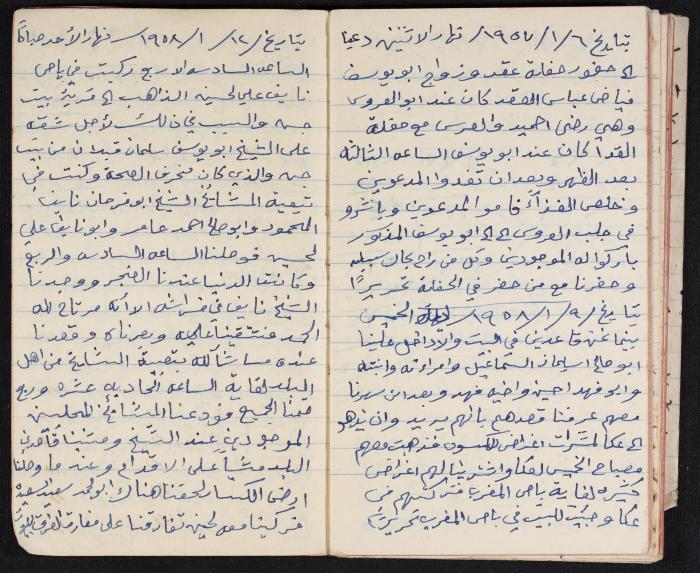 بتاريخ /٦/١/١٩٥٧ نهار الاثنين دعينا
الى حضور حفلة عقد وزواج ابو يوسف
فياض عباس العقد كان عند ابو العروس
وهي رضى احميد والعرس مع حفلة
الغدا كان عند ابو يوسف الساعه الثالثه
بعد الظهر وبعد ان تغدوا المدعوين
وخلص الغذاء قامو المدعوين وباشرو
في جلب العروس الى ابو يوسف المذكور
باركوا له الموجودين وكل من راح بحال سبيله
وحضرنا مع من حضر في الحفلة تحريرًا
بتاريخ /٩/١/١٩٥٨ الخميس
بينما نحن قاعدين في البيت والا داخل علينا
ابو صالح اسليمان اسماعيل وامراءته وابنته
وابو فهد احسين واخيه فهد وبعد ان سهرنا
معهم عرفنا قصدهم بانهم يريدوان يذهبو
الى عكا لمشترات اغراض للكسوه فذهبت معهم
صباح الخميس لعكا واشترينا لهم اغراض
كثيره لغاية باص المغرب تركتهم في
عكا وجيت للبيت في باص المغرب تحريرًا
بتاريخ /١٢/١/١٩٥٨ نهار الأحد صباحًا
الساعه السادسه والاربع ركبت في باص
نايف علي لحسين الذاهب الى قرية بيت
جن والسبب في ذلك لأجل شقه
على الشيخ ابو يوسف سلمان قبلان من بيت
جن والذي كان منحرف الصحة وكنت في
بمعية المشائخ الشيخ ابو فرحان نايف
المحمود وابو صالح احمد عامر وابو نايف علي
لحسين فوصلنا الساعه السادسه والربع
وكانت الدنيا عندنا الفجر ووجدنا
الشيخ نايف في فراشه الا انه مرتاح لله
الحمد فتشقينا عليه وبصرناه وقعدنا
عنده ما شاء الله بمعية المشايخ من اهل
البلد لغاية الساعه الحاديه عشره وربع
قمنا الجميع فودعنا المشائخ المحليين
الموجودين عند الشيخ ومشينا قاصدين
البلد مشيًا على الاقدام وعند ما وصلنا
ارض الكساير لحقنا هناك ابو محمد سعيد
فركبنا معه لحين تفارقنا على مفارق